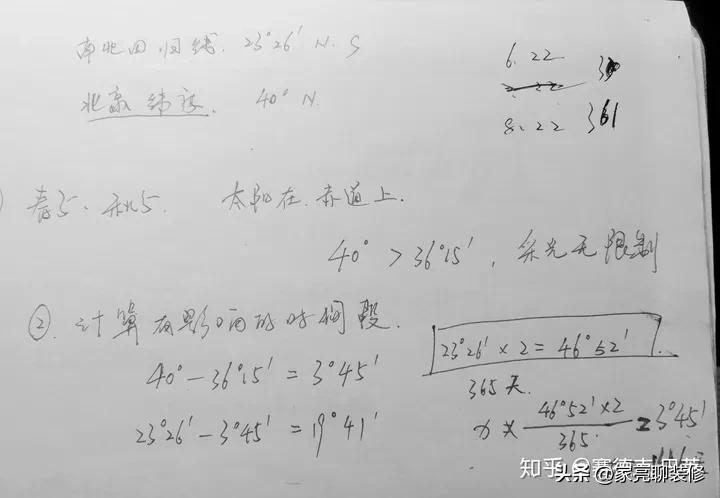 南北回归线. 23°26′ N. S
北京纬度. 40° N.
6.22 30
8.22 31
春分、秋分. 太阳在赤道上.
40° > 36°15′, 采光无限制
② 计算有影响的时间段.
40° - 36°15′ = 3°45′
23°26′ - 3°45′ = 19°41′
23°26′ × 2 = 46°52′
365天.
46°52′ × 2
365
= 3°45′
知乎 @赛德克巴莱
头条 @家亮聊装修